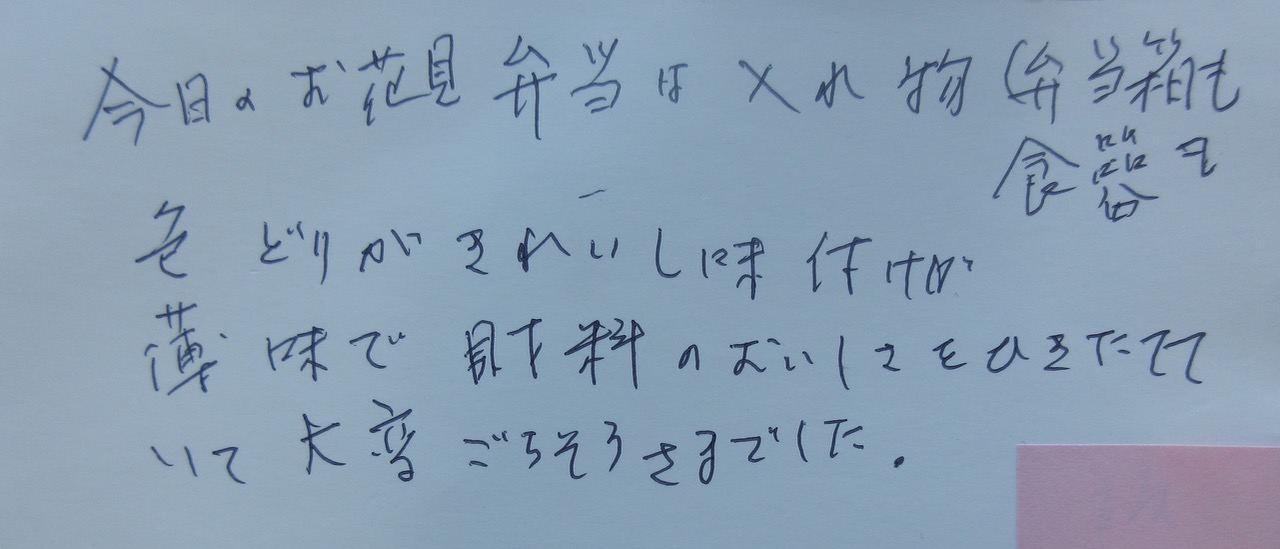 今日のお花見弁当は入れ物(弁当箱も
食器も
色どりがきれいし味付けが
薄味で財料のおいしさをひきたてて
いて大変ごちそうさまでした。